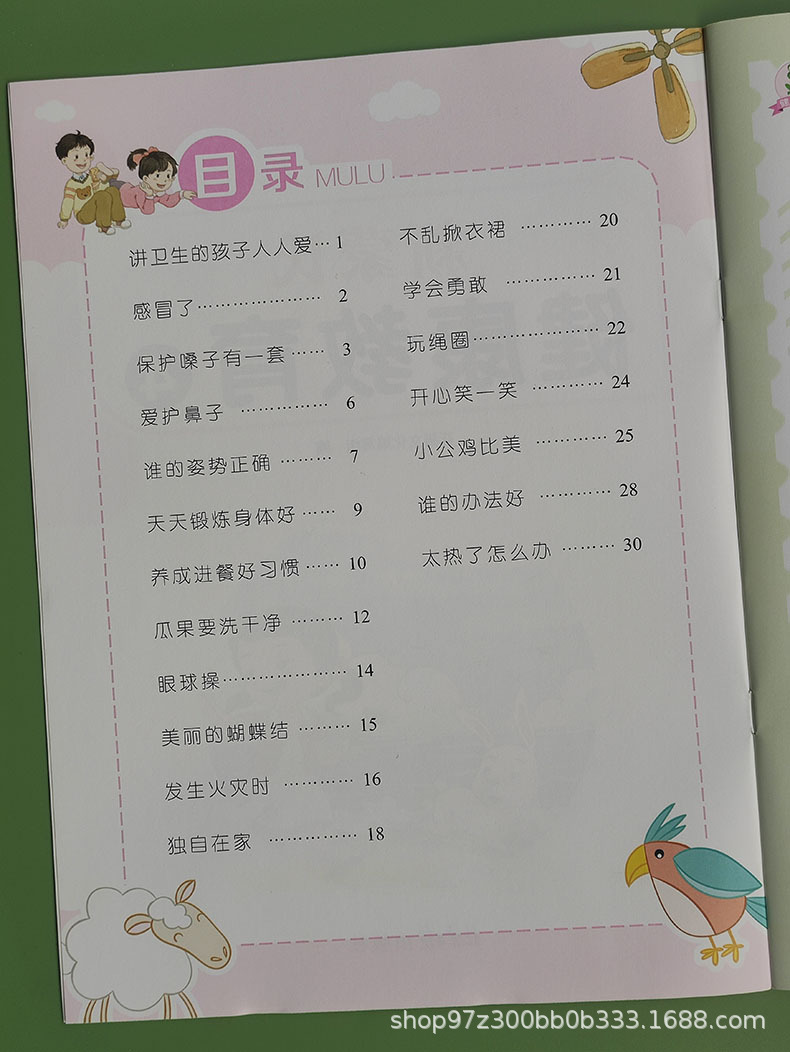 目录 MULU
讲卫生的孩子人人爱…1
感冒了…………………2
保护嗓子有一套……3
爱护鼻子……………6
谁的姿势正确………7
天天锻炼身体好……9
养成进餐好习惯……10
瓜果要洗干净………12
眼球操…………………14
美丽的蝴蝶结………15
发生火灾时…………16
独自在家……………18
不乱掀衣裙…………20
学会勇敢……………21
玩绳圈…………………22
开心笑一笑…………24
小公鸡比美…………25
谁的办法好…………28
太热了怎么办………30
shop97z300bb0b333.1688.com